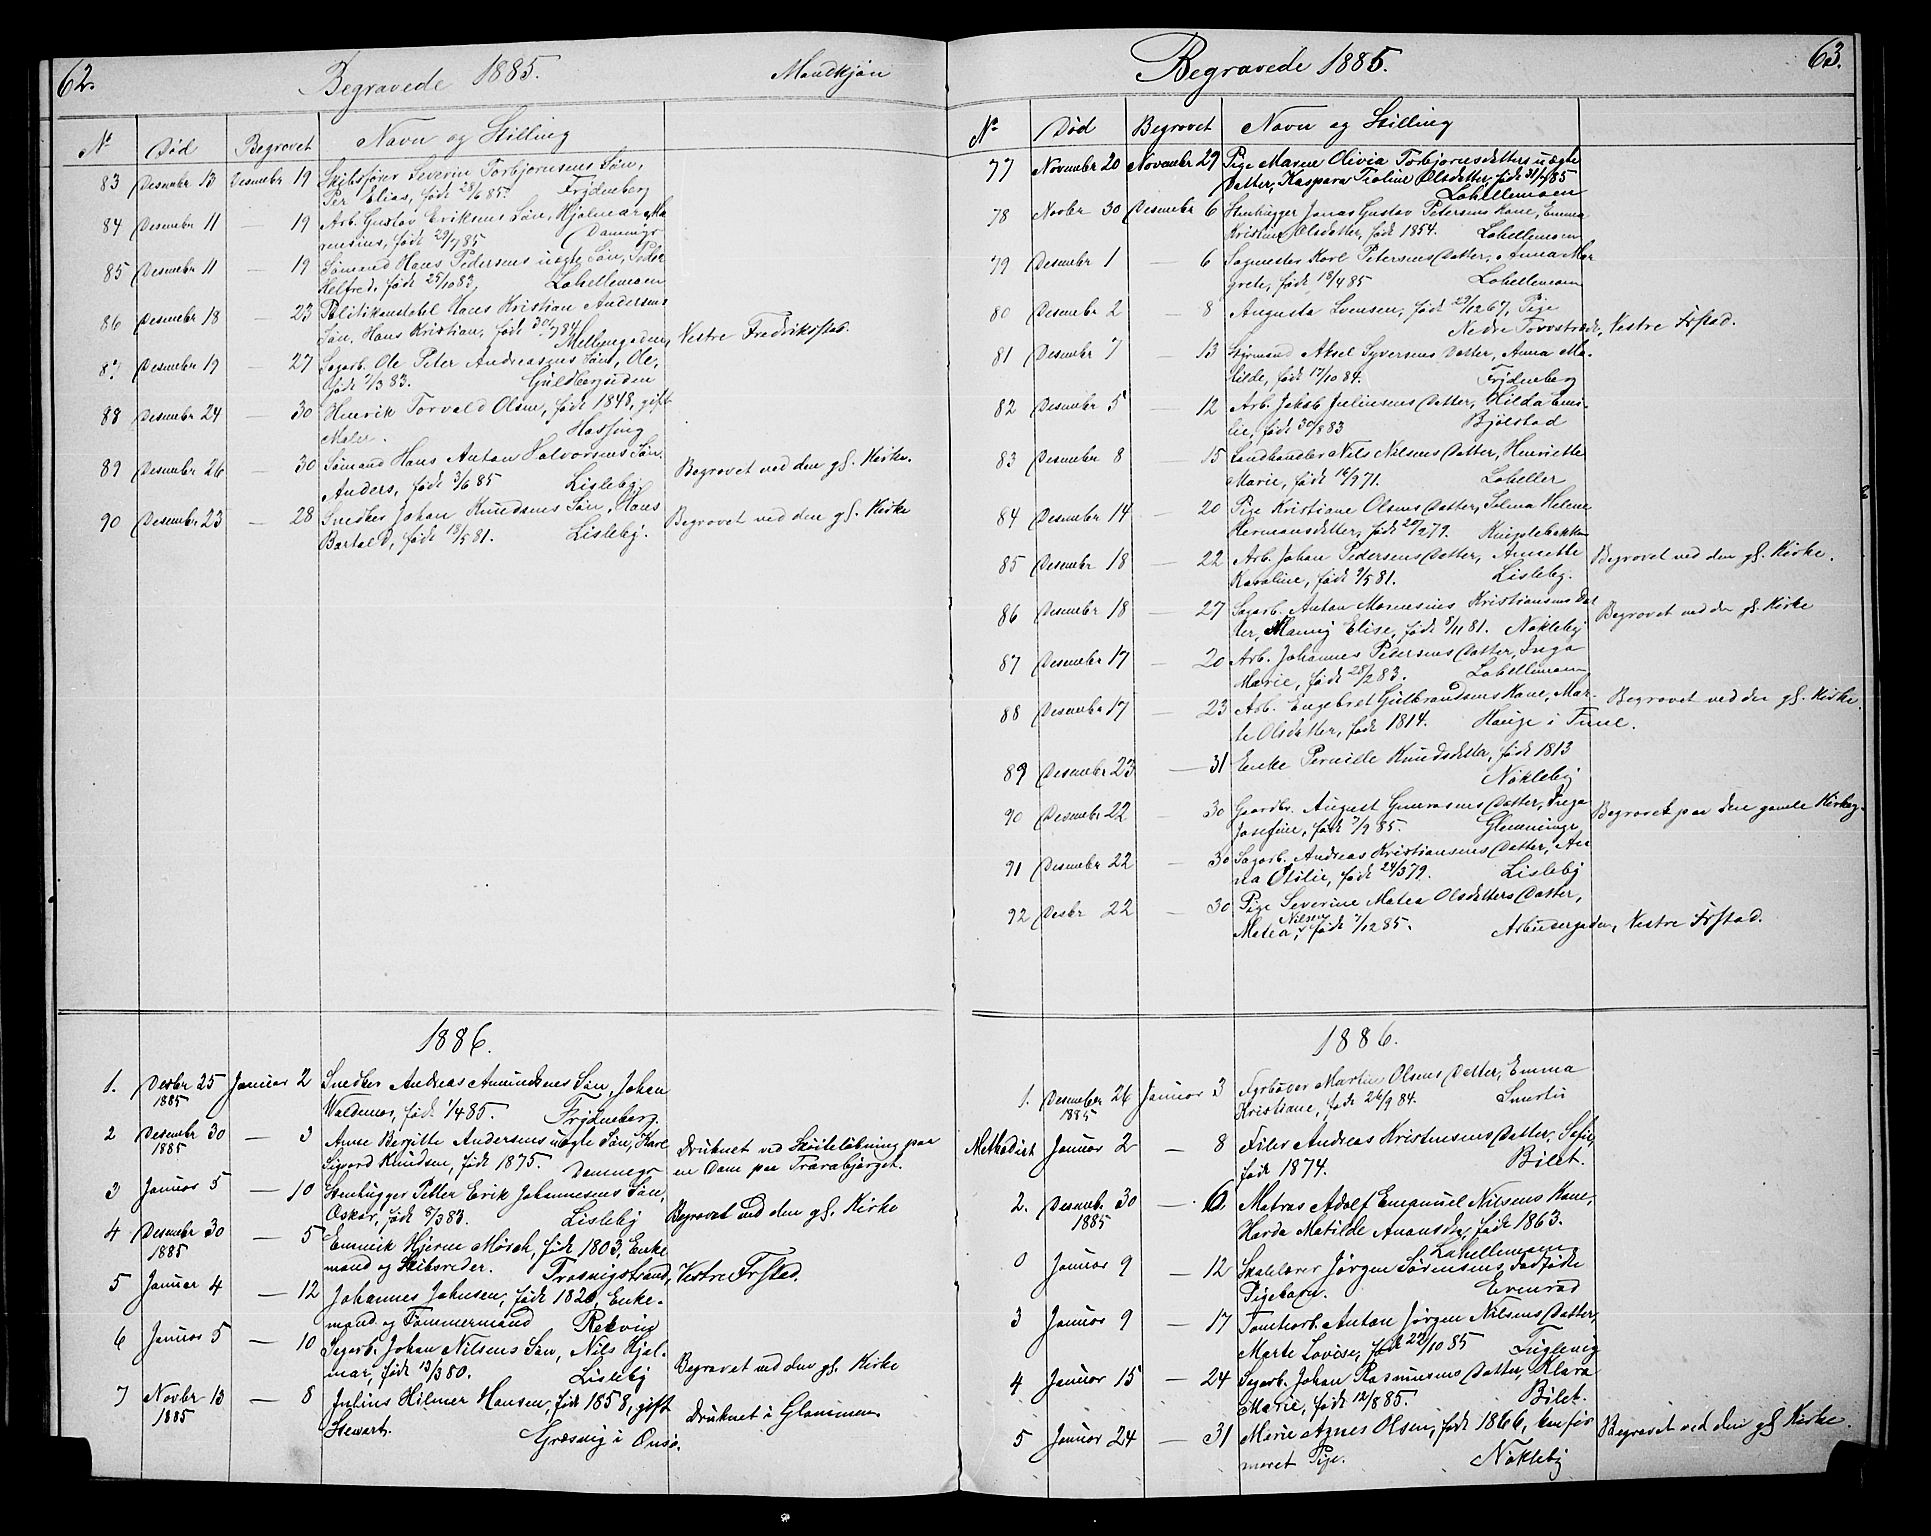 62.
Begravede 1885.
Mandkjøn
No Død Begravet Navn og Stilling
83 Desember 13 Desember 19 Skibsfører Severin Torbjørnsens Søn,
Per Elias, født 28/6 85. Frydenberg
84 Desember 11 — 19 Arb. Gustav Eriksens Søn, Hjalmar Ma-
rensius, født 29/7 85 Damvigr
85 Desember 11 — 19 Sømand Hans Pedersens uægte Søn, Peder
Helfred, født 25/10 83, Lahellemoen
86 Desember 18 — 23 Politikonstabel Hans Kristian Andersens
Søn, Hans Kristian, født 30/7 84, Mellemgaden, Vestre Fredriksstad.
87 Desember 19 — 27 Sagarb. Ole Peter Andreasens Søn, Ole,
født 7/3 83. Guldbergsiden
88 Desember 24 — 30 Henrik Torvald Olsen, født 1848, gift
Maler. Hassing
89 Desember 26 — 30 Sømand Hans Anton Halvorsens Søn. Begravet ved den gl. Kirke.
Anders, født 3/6 85 Lisleby.
90 Desember 23 — 28 Snedker Johan Knudsens Søn, Hans Begravet ved den gl. Kirke
Bartold, født 18/5 81. Lisleby.
1886.
1. Desbr 25 Januar 2 Snedker Andreas Amundsens Søn, Johan
1885
Waldemar, født 1/4 85. Frydenberg.
2 Desember 30 — 3 Anne Bergitte Andersens uægte Søn, Karl Druknet ved Skøiteløbning paa
1885
Sigvard Knudsen, født 1875. Damvegr en Dam paa Traraberget.
3 Januar 5 — 10 Stenhugger Petter Erik Johannesens Søn, Begravet ved den gl. Kirke
Oskar, født 8/3 83. Lisleby
4 Desember 30 — 5 Emmik Hjerm Mørch, født 1803, Enke-
1885
mand og Skibsreder. Trosvigstrand, Vestre Frstad.
5 Januar 4 — 12 Johannes Johnsen, født 1820, Enke-
mand og Tømmermand Rekvin
6 Januar 5 — 10 Sagarb. Johan Nilsens Søn, Nils Hjal- Begravet ved den gl. Kirke
mar, født 13/3 80. Lisleby
7 Novbr 13 — 8 Julius Hilmer Hansen, født 1858, gift Druknet i Glommen
1885
Stewart. Græsvig i Onsø.
63.
Begravede 1885.
No Død Begravet Navn og Stilling
77 November 20 November 29 Pige Maren Olivia Torbjørnsdatters uægte
Datter, Kaspara Teoline Olsdatter, født 31/7 85
Lahellemoen
78 Novbr 30 Desember 6 Stenhugger Jonas Gustav Petersens Kone, Emma
Kristine Olsdatter, født 1854. Lahellemoen
79 Desember 1 — 6 Sagmester Karl Petersens Datter, Anna Mar-
grete, født 18/4 85 Lahellemoen
80 Desember 2 — 8 Augusta Svensen, født 29/12 67, Pige
Nedre Torvstræde, Vestre Frstad.
81 Desember 7 — 13 Styrmand Aksel Syversens Datter, Anna Ma-
tilde, født 17/10 84. Frydenberg
82 Desember 5 — 12 Arb. Jakob Juliusens Datter, Hilda Emi-
lie, født 30/8 83 Bjølstad
83 Desember 8 — 15 Landhandler Nils Nilsens Datter, Henriette
Marie, født 16/9 71. Laheller
84 Desember 14 — 20 Pige Kristiane Olsens Datter, Selma Helene
Hermansdatter, født 29/2 79. Kniplebakken
85 Desember 18 — 22 Arb. Johan Pedersens Datter, Annette Begravet ved den gl. Kirke.
Karoline, født 9/5 81. Lisleby.
86 Desember 18 — 27 Sagarb. Anton Marensius Kristiansens Dat- Begravet ved den gl. Kirke
ter, Manny Elise, født 8/11 81. Nøkleby
87 Desember 17 — 20 Arb. Johannes Pedersens Datter, Inga
Marie, født 28/2 83. Lahellemoen
88 Desember 17 — 23 Arb. Engebret Gulbrandsens Kone, Mar- Begravet ved den gl. Kirke.
te Olsdatter, født 1814. Hauge i Tune.
89 Desember 23 — 31 Enke Pernille Knudsdatter, født 1813
Nøkleby
90 Desember 22 — 30 Gaardbr. August Gunerusens Datter, Inga Begravet paa den gamle Kirkeg.
Josefine, født 7/9 85. Glemminge
91 Desember 22 — 30 Sagarb. Andreas Kristiansens Datter, An-
na Otilie, født 24/3 79. Lisleby
92 Desbr 22 — 30 Pige Severine Matea Olsdatters Datter,
Matea Nilsen, født 7/12 85. Arbeidergaden, Vestre Frstad.
1886.
1. Desember 26 Januar 3 Fyrbøder Martin Olsens Datter, Emma
1885
Kristiane, født 26/9 84. Smertu
Methodist Januar 2 — 8 Filer Andreas Kristensens Datter, Sofie
født 1874. Bilet.
2. Desemb. 30 — 6. Matros Adolf Emanuel Nilsens Kone,
1885
Harda Matilde Anansdtr, født 1863.
Lahellemoen
0 Januar 9 — 12 Skolelærer Jørgen Sørensens dødfødte
Pigebarn. Evenrød
3 Januar 9 — 17 Tomtearb. Anton Jørgen Nilsens Datter,
Marte Lovise, født 22/10 85 Fuglevig
4 Januar 15 — 24 Sagarb. Johan Rasmussens Datter, Klara
Marie, født 12/8 85. Bilet.
5 Januar 24 — 31 Marie Agnes Olsen, født 1866, konfir- Begravet ved den gl. Kirke.
meret Pige. Nøkleby